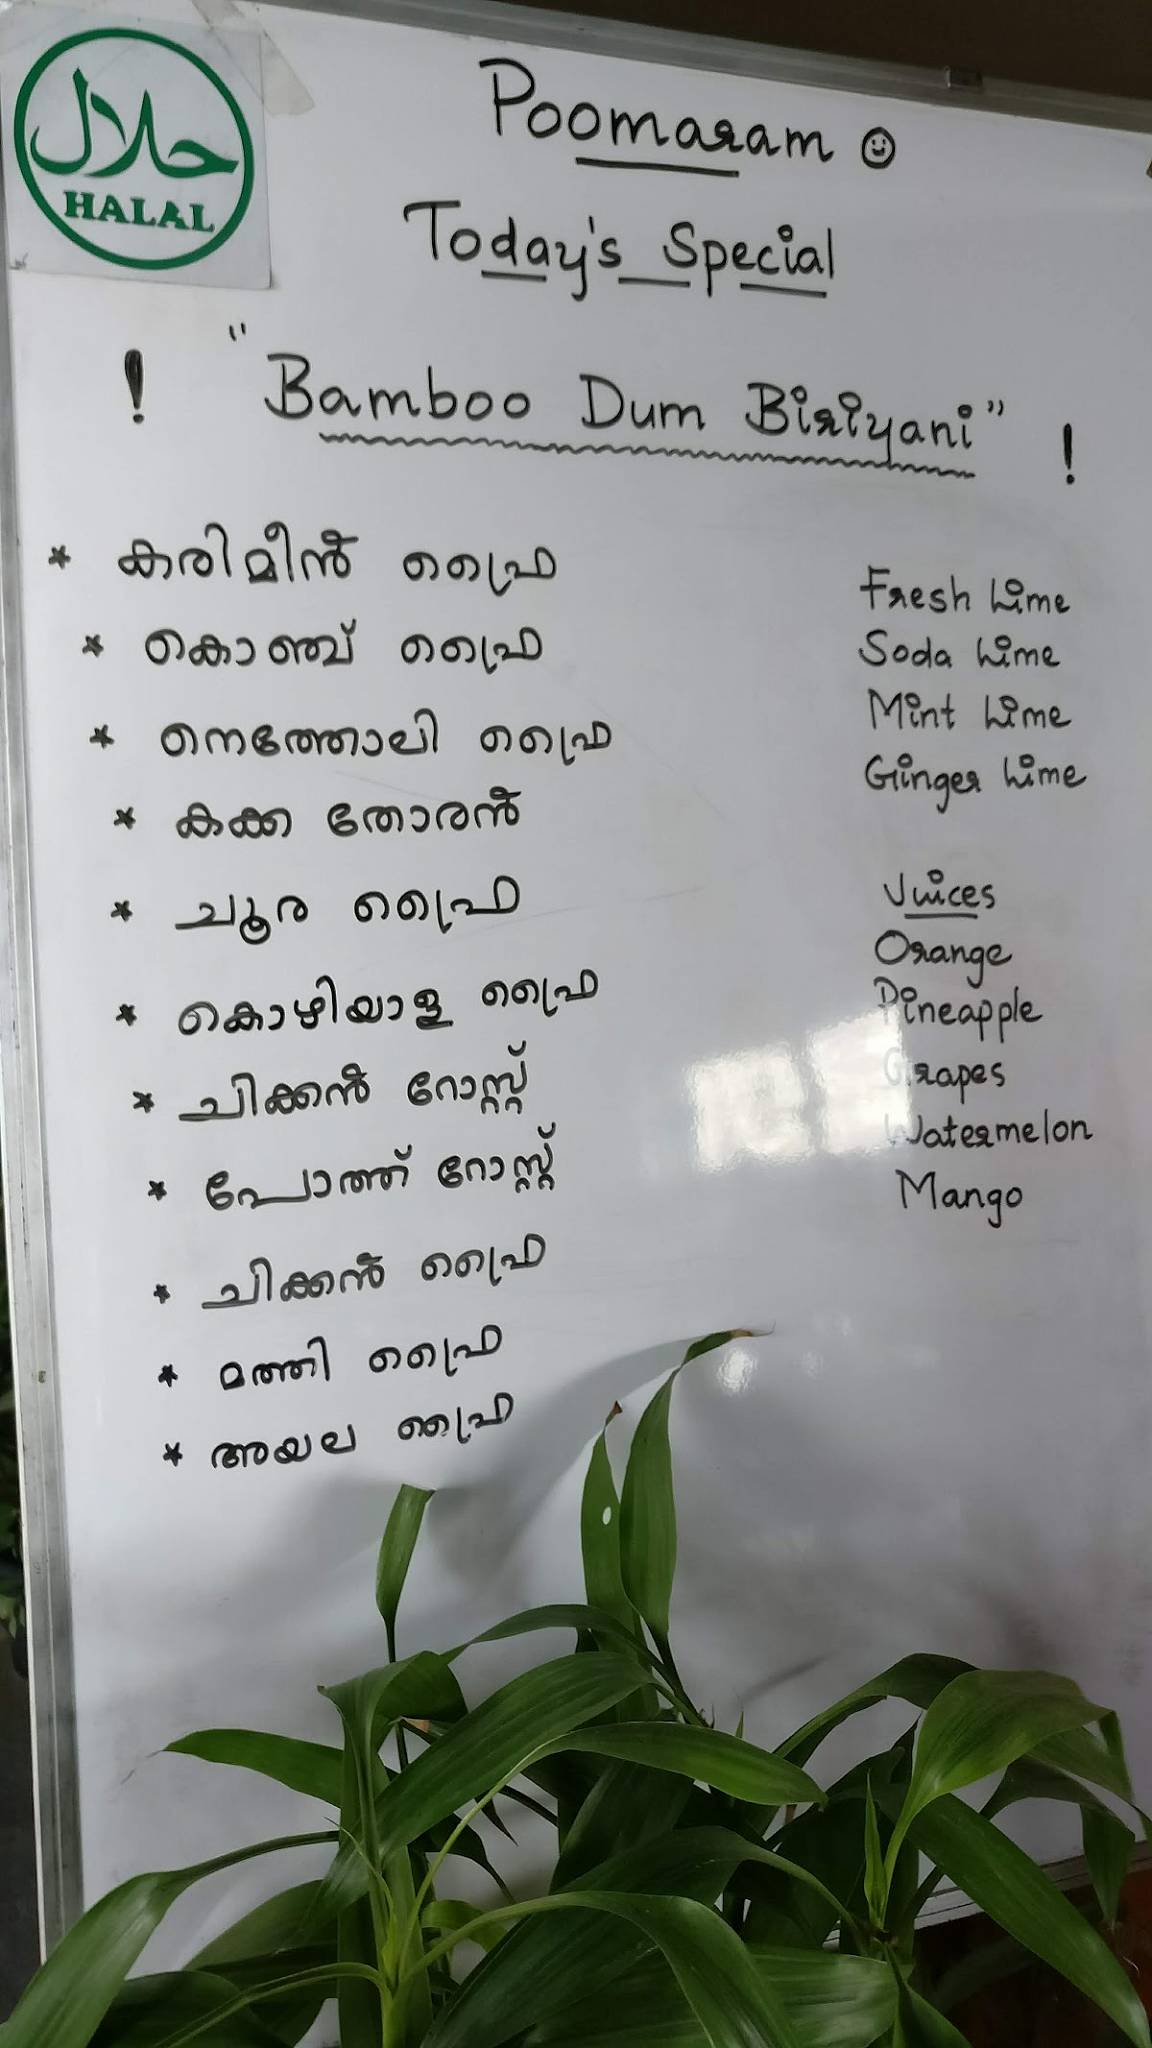 حلال
HALAL
Poomaram
Today's Special
! "Bamboo Dum Biriyani" !
* കരിമീൻ ഫ്രൈ
* കൊഞ്ച് ഫ്രൈ
* നെത്തോലി ഫ്രൈ
* കക്ക തോരൻ
* ചൂര ഫ്രൈ
* കൊഴിയാള ഫ്രൈ
* ചിക്കൻ റോസ്റ്റ്
* പോത്ത് റോസ്റ്റ്
* ചിക്കൻ ഫ്രൈ
* മത്തി ഫ്രൈ
* അയല ഫ്രൈ
Fresh Lime
Soda Lime
Mint Lime
Ginger Lime
Juices
Orange
Pineapple
Grapes
Watermelon
Mango